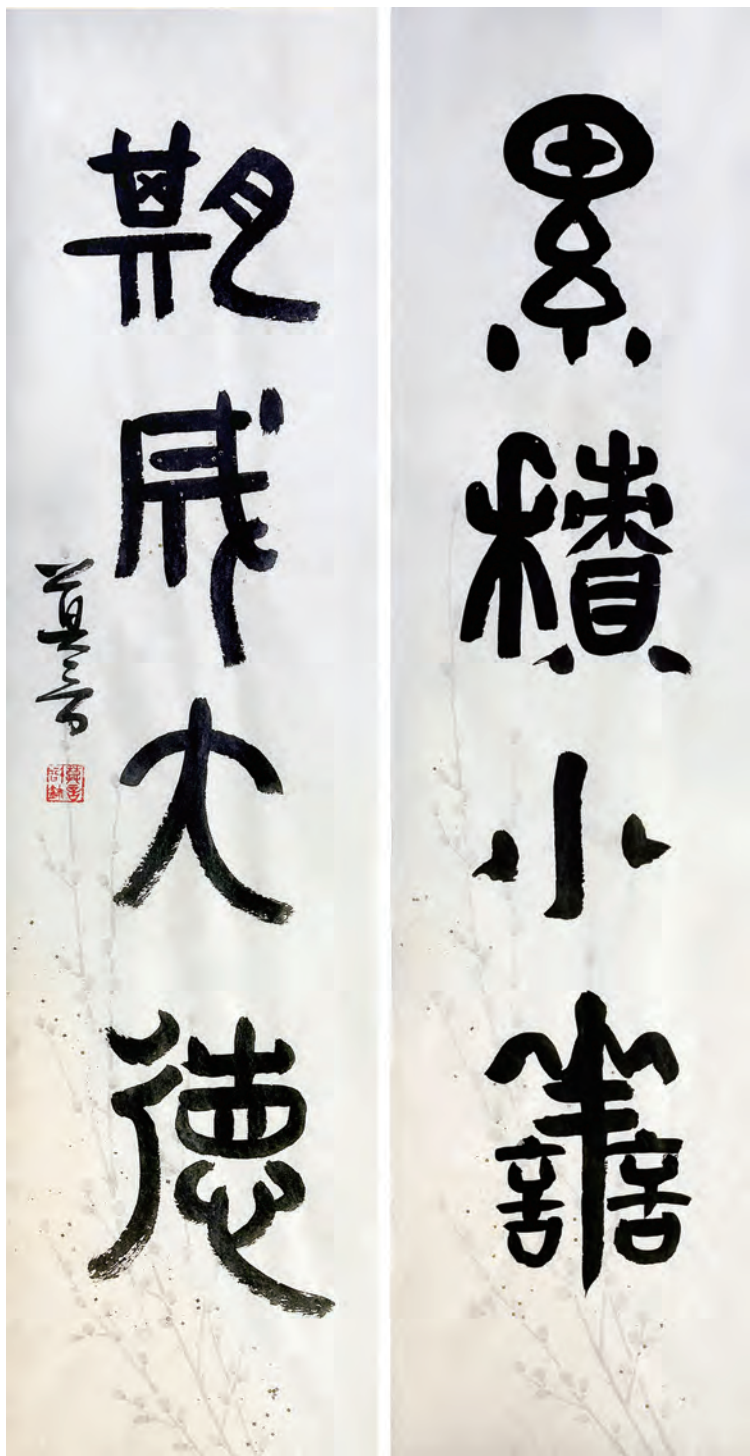 累積小善
期成大德